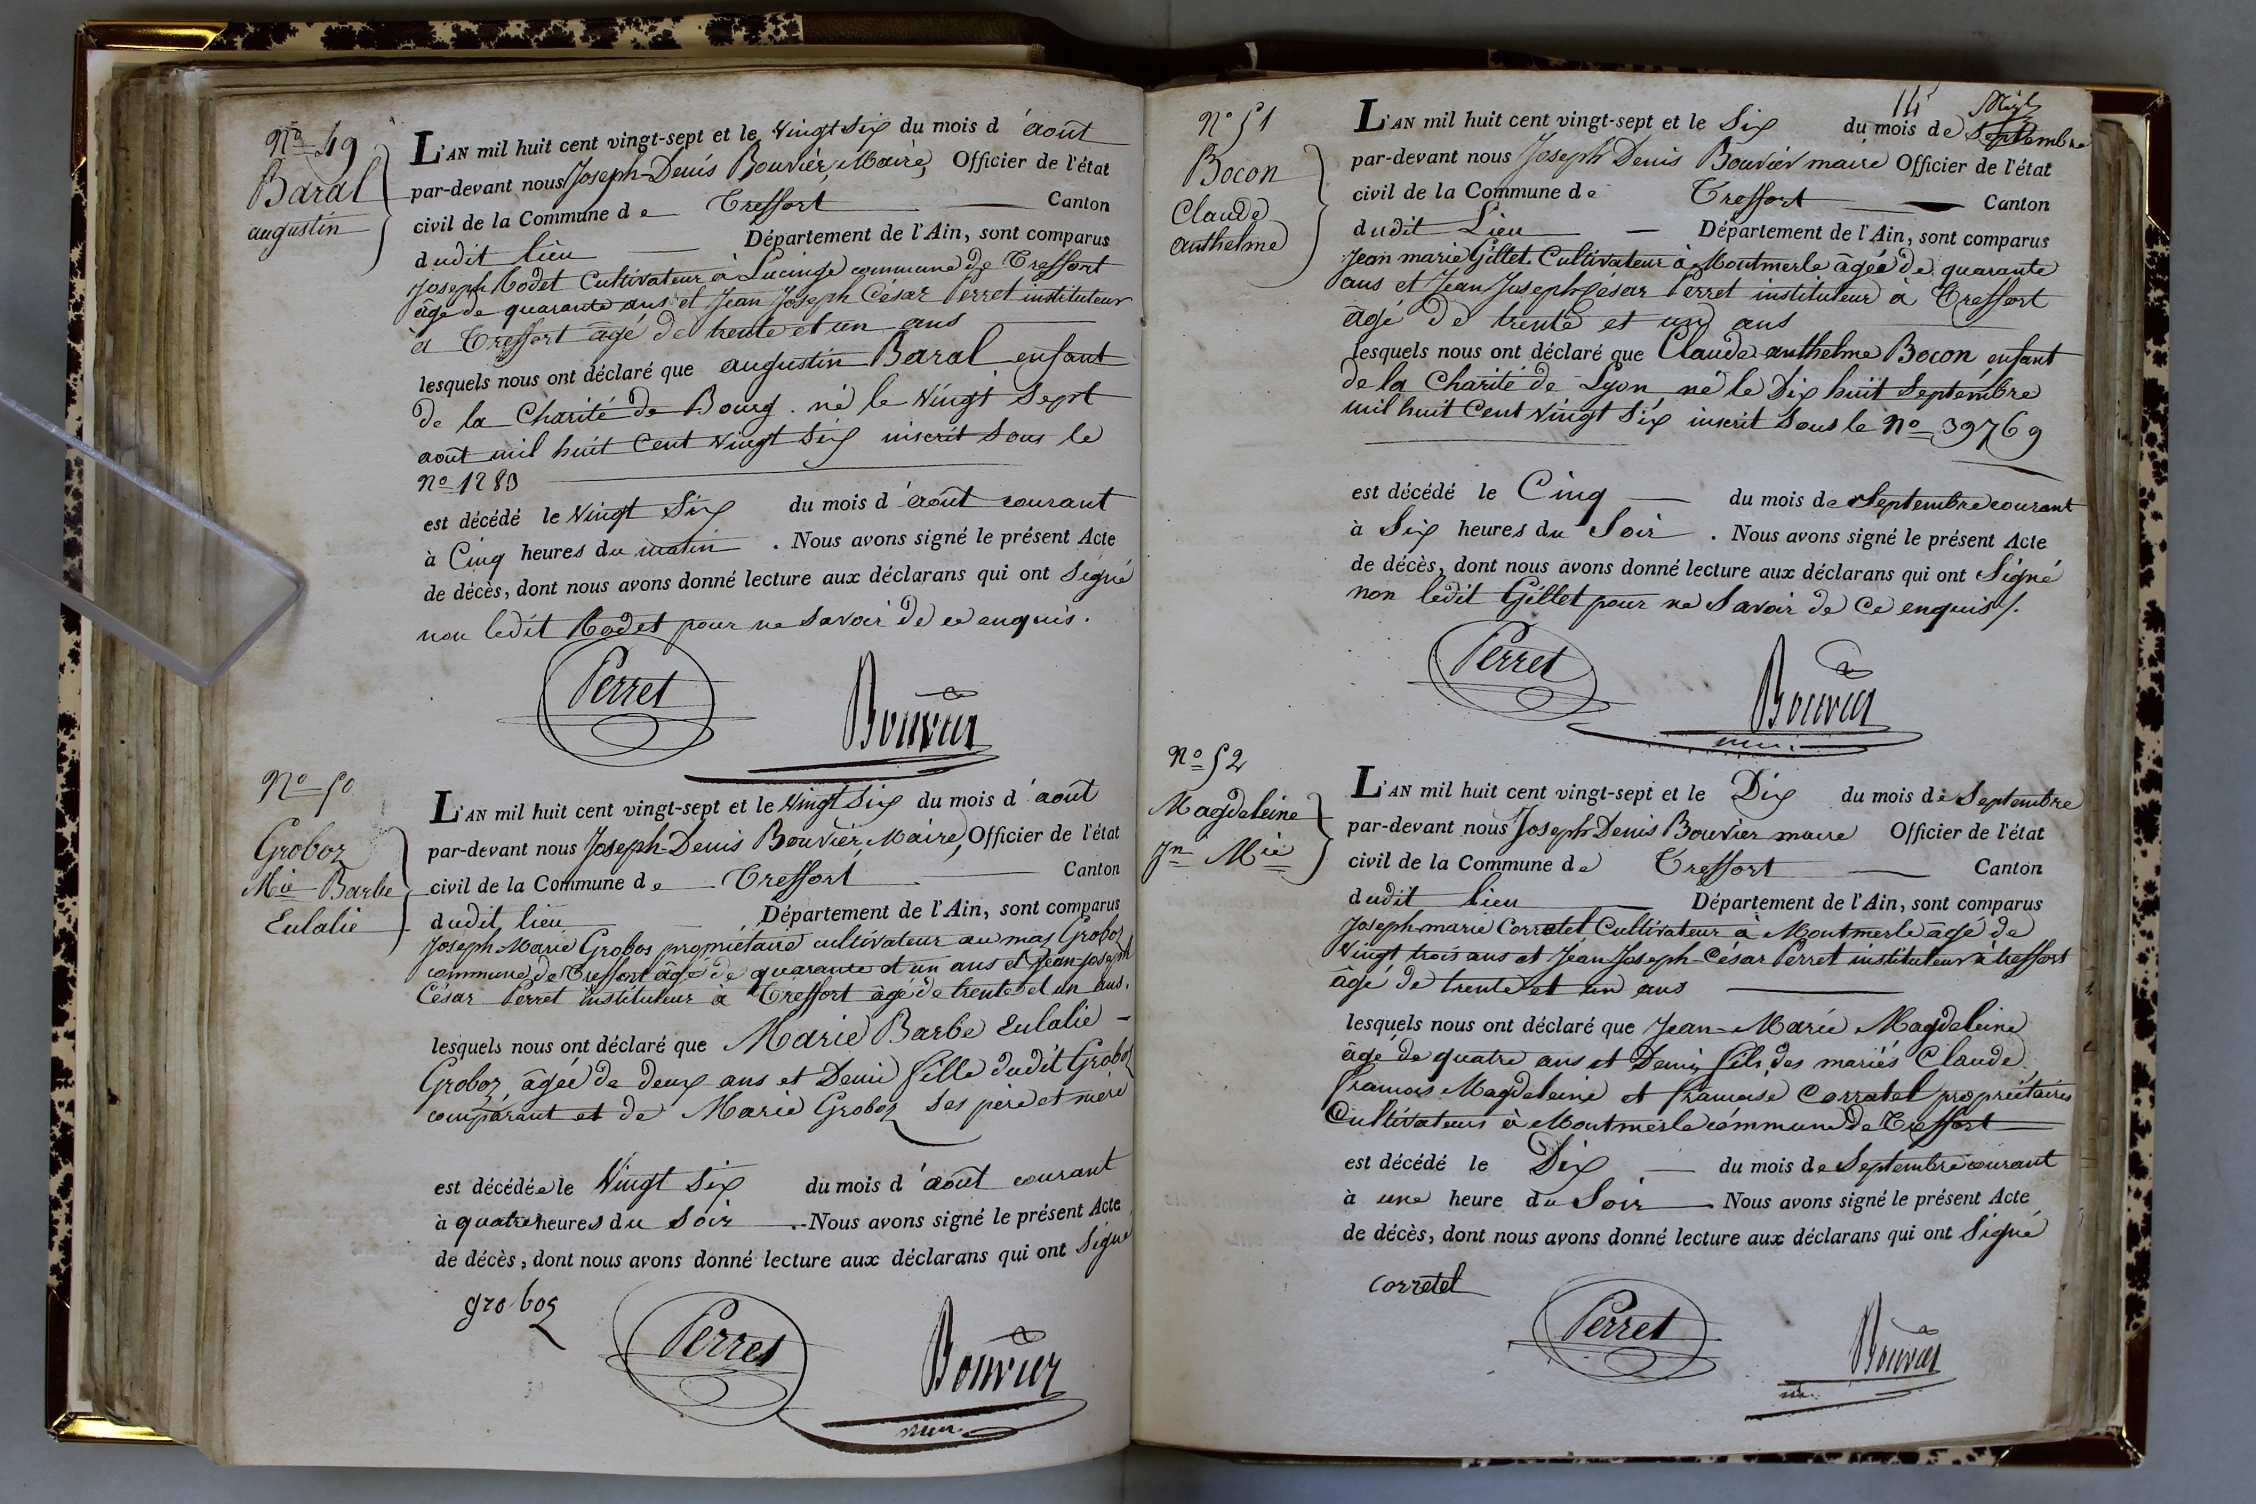 N° 49
Baral
augustin
L'AN mil huit cent vingt-sept et le Vingt Six du mois d'août
par-devant nous Joseph-Denis Bouvier, Maire, Officier de l'état
civil de la Commune de Treffort Canton
dudit lieu Département de l'Ain, sont comparus
Joseph Rodet Cultivateur à Lucinge commune de Treffort
âgé de quarante ans et Jean Joseph César Perret instituteur
à Treffort âgé de trente et un ans
lesquels nous ont déclaré que augustin Baral enfant
de la Charité de Bourg. né le Vingt Sept
août mil huit Cent Vingt Six inscrit Sous le
N° 1283
est décédé le Vingt Six du mois d'août courant
à Cinq heures du matin. Nous avons signé le présent Acte
de décès, dont nous avons donné lecture aux déclarans qui ont Signé
non ledit Rodet pour ne Savoir de ce enquis.
Perret
Bouvier
N° 50
Groboz
Mie Barbe
Eulalie
L'AN mil huit cent vingt-sept et le Vingt Six du mois d'août
par-devant nous Joseph-Denis Bouvier, Maire, Officier de l'état
civil de la Commune de Treffort Canton
dudit lieu Département de l'Ain, sont comparus
Joseph Marie Groboz propriétaire cultivateur au mas Groboz
commune de Treffort âgé de quarante et un ans et Jean Joseph
César Perret instituteur à Treffort âgé de trente et un ans.
lesquels nous ont déclaré que Marie Barbe Eulalie -
Groboz, âgée de deux ans et Demi fille dudit Groboz
comparant et de Marie Groboz Ses père et mère
est décédée le Vingt Six du mois d'août courant
à quatre heures du Soir. - Nous avons signé le présent Acte
de décès, dont nous avons donné lecture aux déclarans qui ont Signé
groboz
Perret
Bouvier
N° 51
Bocon
Claude
anthelme
L'AN mil huit cent vingt-sept et le Six du mois de Septembre
par-devant nous Joseph Denis Bouvier maire Officier de l'état
civil de la Commune de Treffort Canton
dudit Lieu Département de l'Ain, sont comparus
Jean marie Gillet Cultivateur à Montmerle âgée de quarante
ans et Jean Joseph César Perret instituteur à Treffort
âgé de trente et un ans
lesquels nous ont déclaré que Claude anthelme Bocon enfant
de la Charité de Lyon, né le Dix huit Septembre
mil huit Cent Vingt Six inscrit Sous le N° 39769
est décédé le Cinq du mois de Septembre courant
à Six heures du Soir. Nous avons signé le présent Acte
de décès, dont nous avons donné lecture aux déclarans qui ont Signé
non ledit Gillet pour ne Savoir de Ce enquis /.
Perret
Bouvier
N° 52
Magdeleine
Jn Mie
L'AN mil huit cent vingt-sept et le Dix du mois de Septembre
par-devant nous Joseph Denis Bouvier maire Officier de l'état
civil de la Commune de Treffort Canton
dudit lieu Département de l'Ain, sont comparus
Joseph-marie Corretel Cultivateur à Montmerle âgé de
Vingt trois ans et Jean Joseph-César Perret instituteur à treffort
âgé de trente et un ans
lesquels nous ont déclaré que Jean-Marie Magdeleine
âgé de quatre ans et Demi, fils des mariés Claude
francois Magdeleine et francoise Corratel propriétaires
Cultivateurs à Montmerle commune de Treffort
est décédé le Dix du mois de Septembre courant
à une heure du Soir. Nous avons signé le présent Acte
de décès, dont nous avons donné lecture aux déclarans qui ont Signé
corretel
Perret
Bouvier